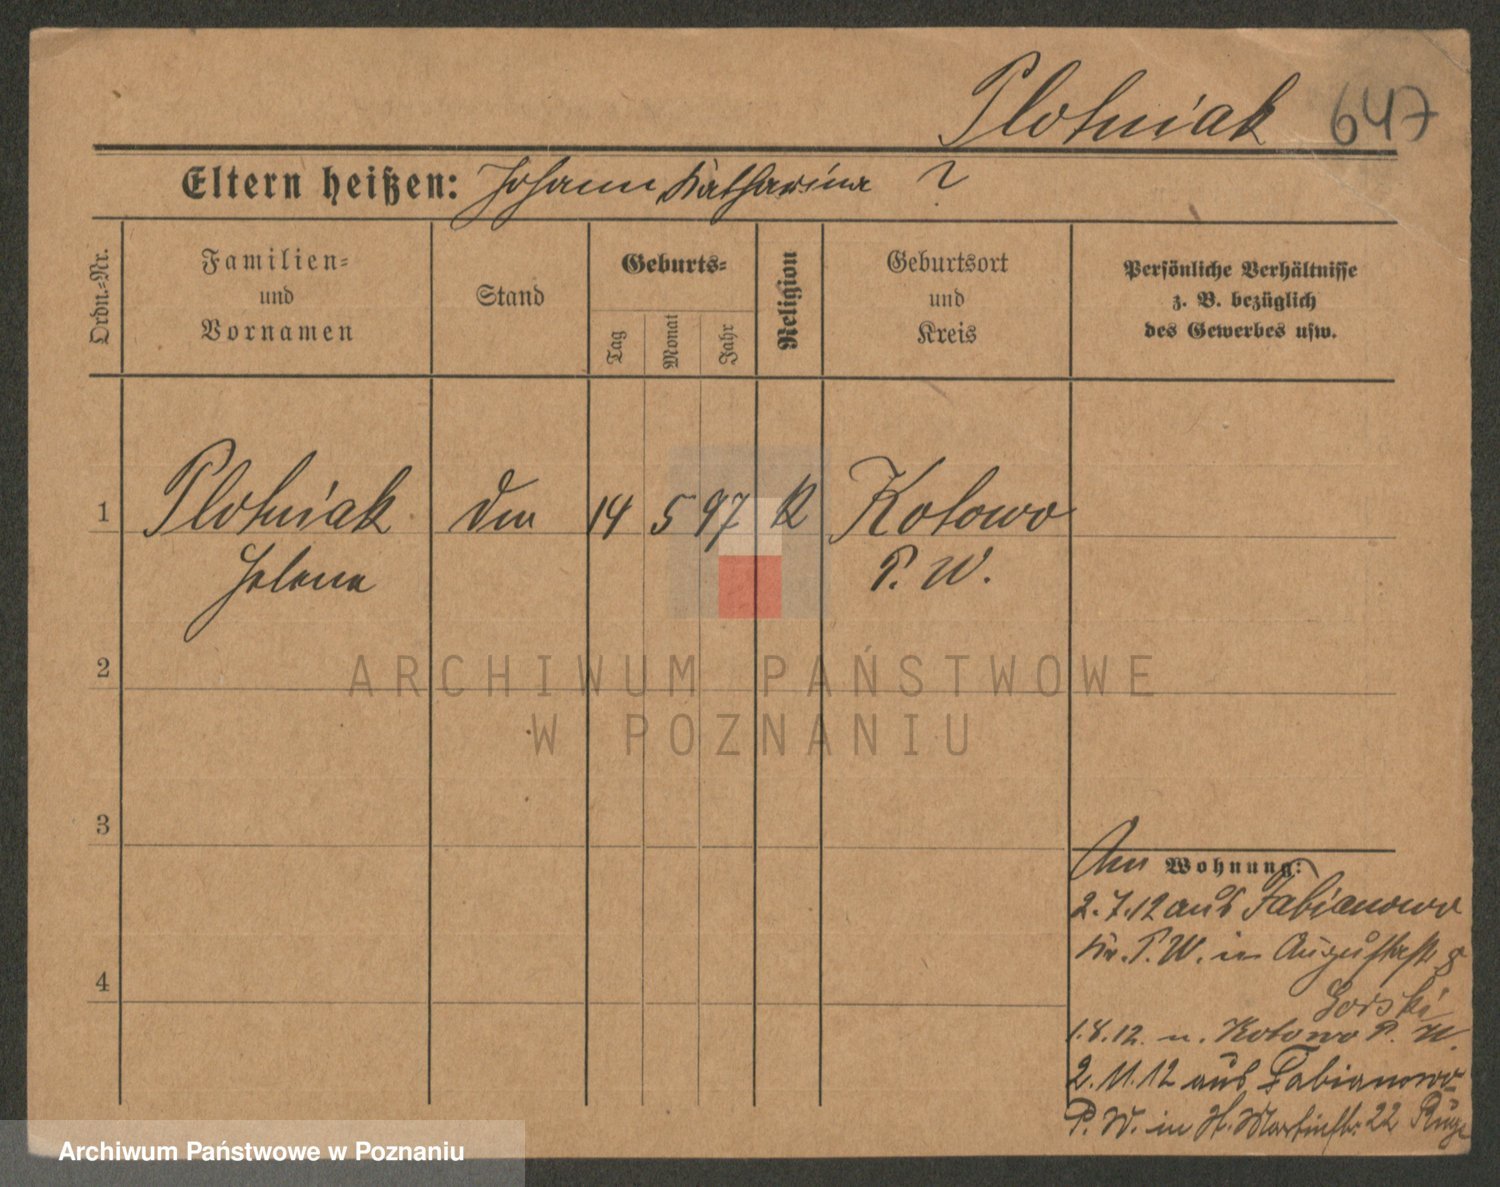 Plotniak 647
Eltern heißen: Johann Katharina ?
Ordn.-Nr.
Familien-
und
Vornamen
Stand
Geburts-
Tag
Monat
Jahr
Religion
Geburtsort
und
Kreis
Persönliche Verhältnisse
z. B. bezüglich
des Gewerbes usw.
1 Plotniak 14 5 97 K Kotowo
Helena P. W.
2
3
4
Wohnung:
2.7.12 aus Fabianowo
Kr. P. W. in Augustastr 8
Gorski
1.8.12. n. Kotowo P. W.
2.11.12 aus Fabianowo
P. W. in St. Martinstr. 22
ARCHIWUM PAŃSTWOWE
W POZNANIU
Archiwum Państwowe w Poznaniu